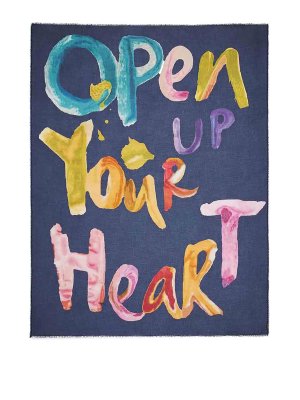 Open
UP
Your
HeaRT